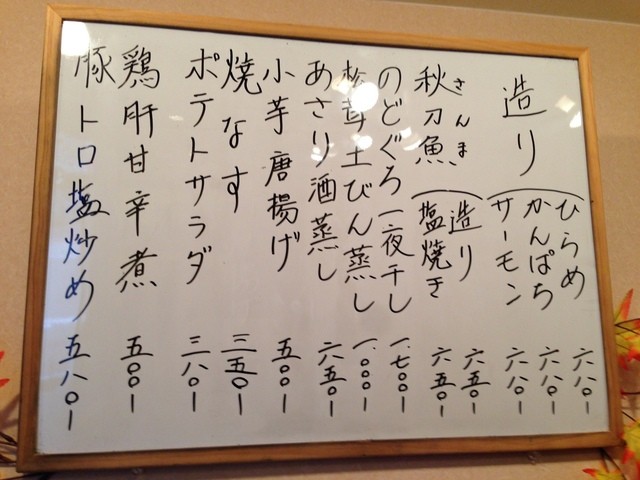 造り
ひらめ 六八〇ー
かんぱち 六八〇ー
サーモン 六八〇ー
さんま
秋刀魚
造り 六五〇ー
塩焼き 六五〇ー
のどぐろ一夜干し 一、七〇〇ー
松茸土びん蒸し 一、〇〇〇ー
あさり酒蒸し 六五〇ー
小芋唐揚げ 五〇〇ー
焼なす 三五〇ー
ポテトサラダ 三八〇ー
鶏肝甘辛煮 五〇〇ー
豚トロ塩炒め 五八〇ー